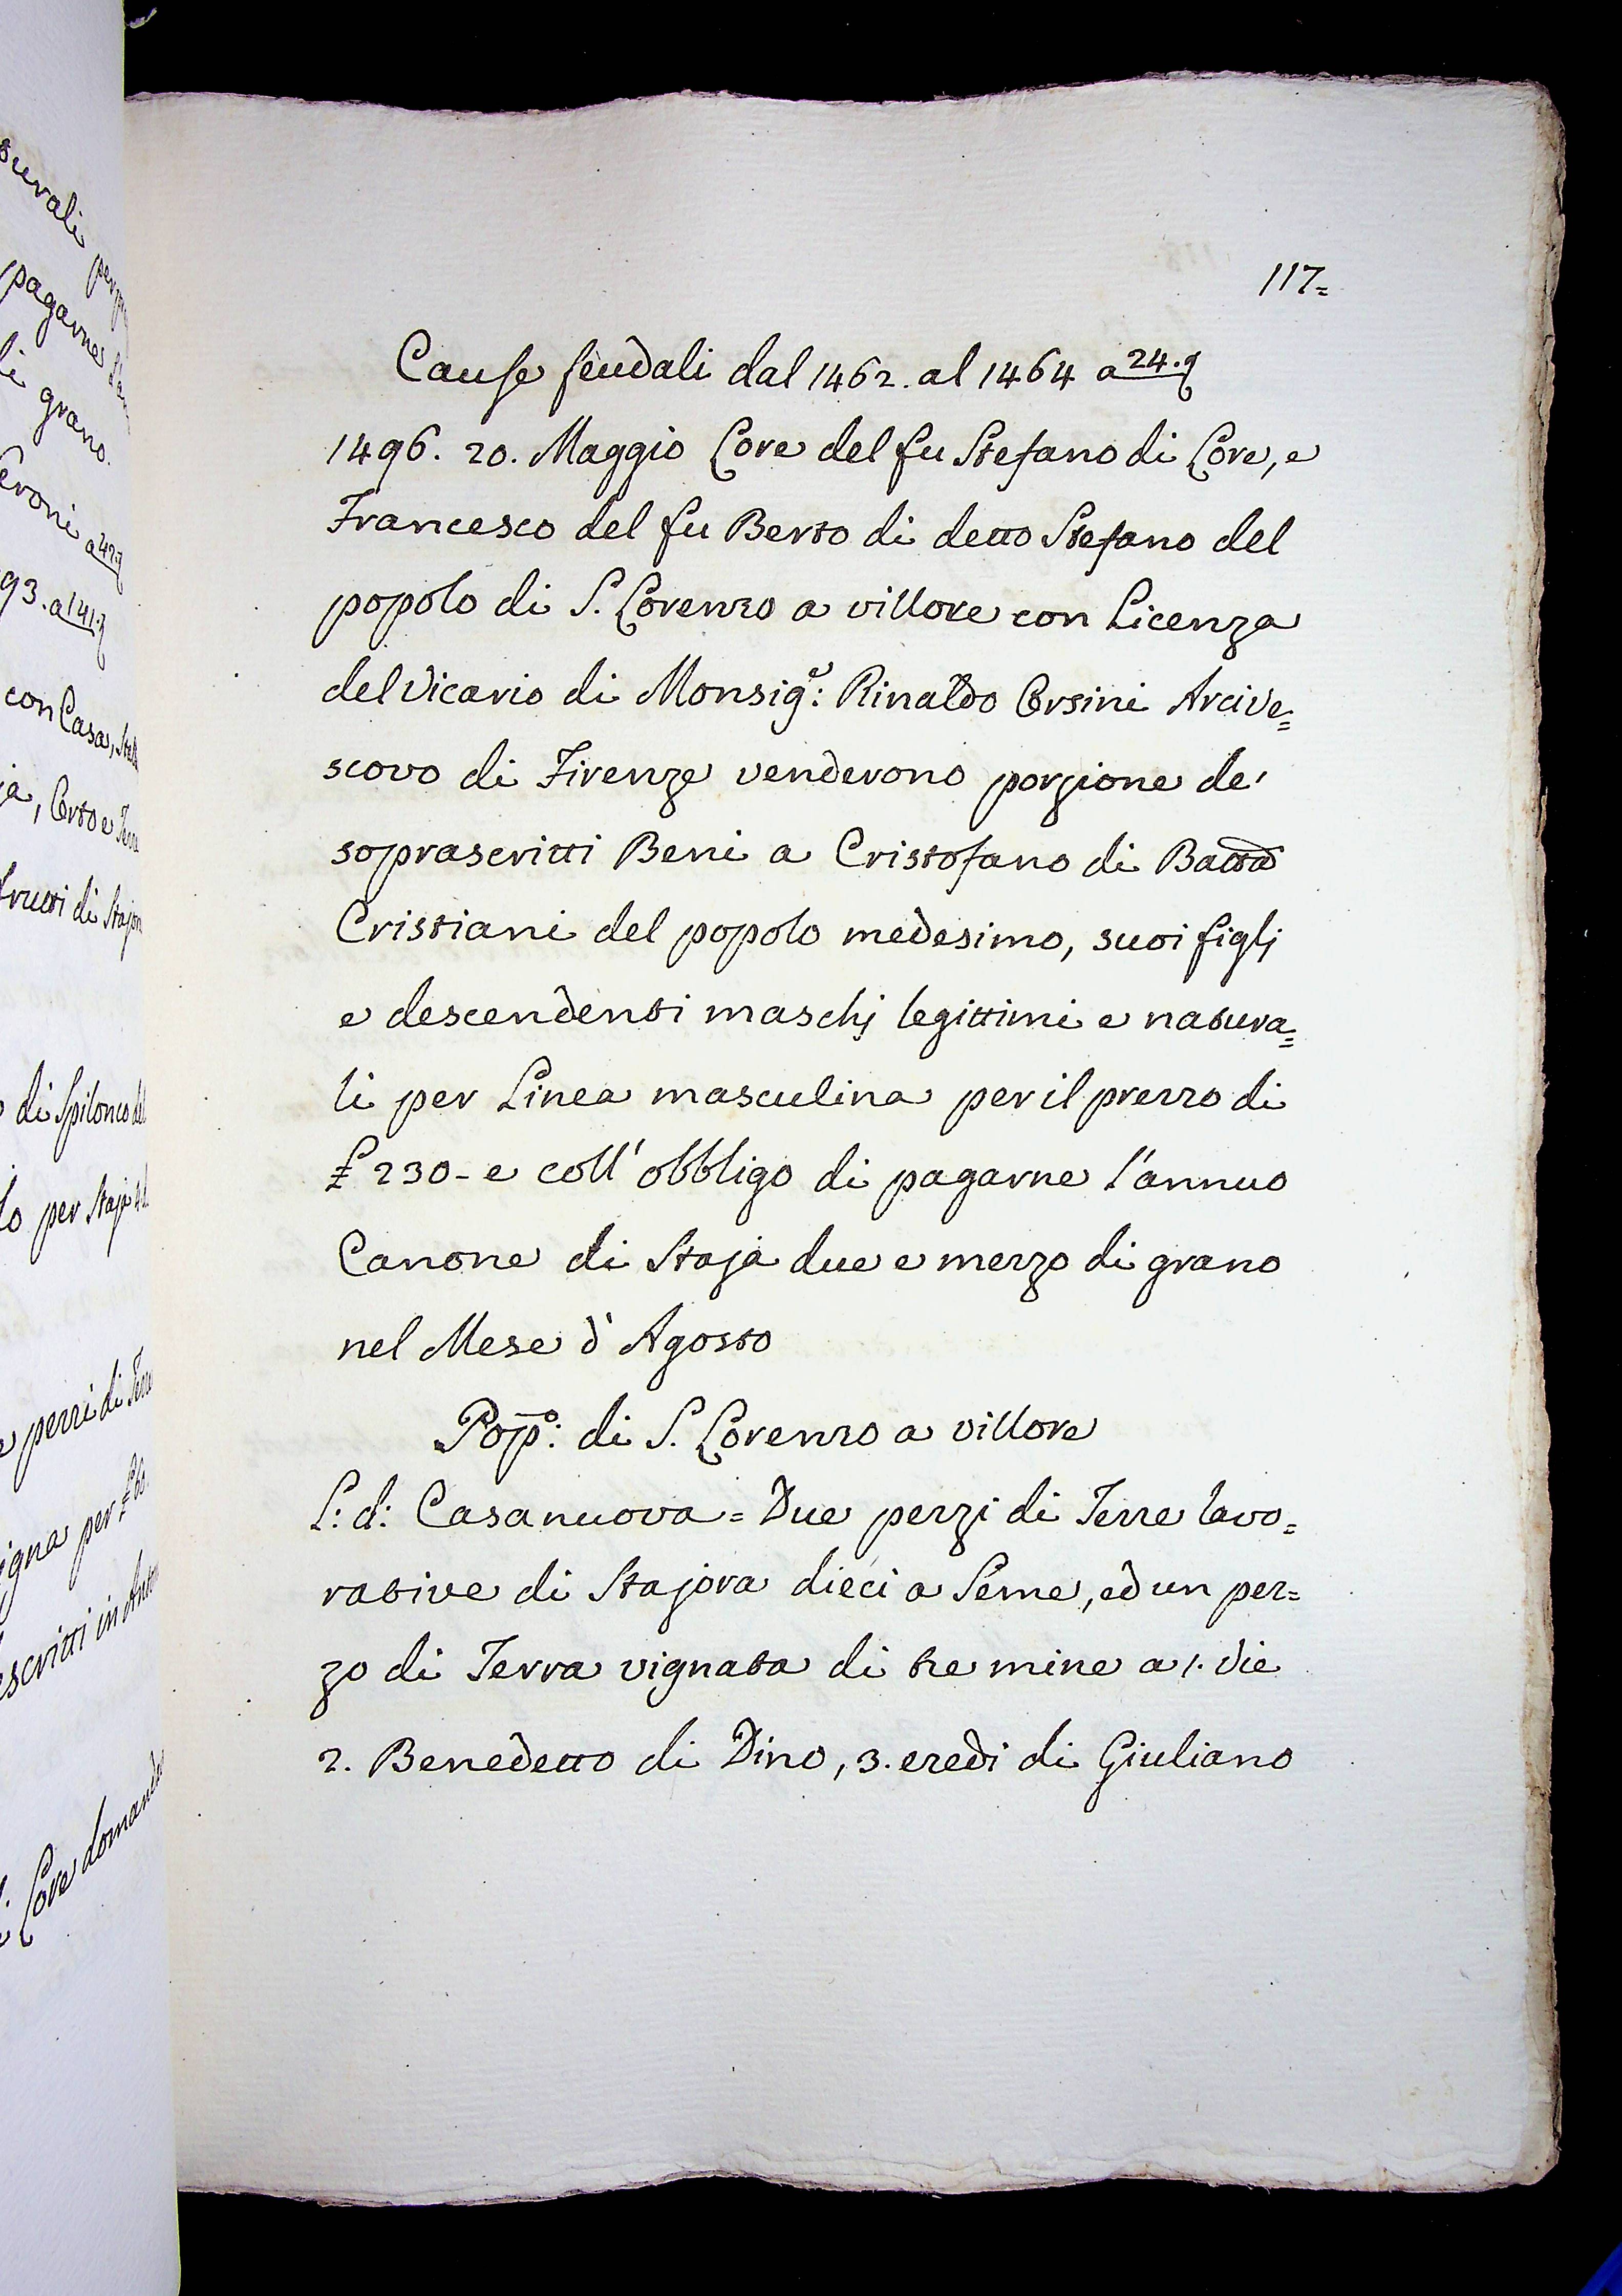 surali
pagarne
di grano.
eroni a 42.
93. a 141.
con Casa,
ja, Orto e Terra
frutti di Stajora
di Spilonco del
lo per Staja
pezzi di Terra
igna per £ 60.
scritti in
Core domanda
117=
Cause feudali dal 1462. al 1464 a 24.
1496. 20. Maggio Core del fu Stefano di Core, e
Francesco del fu Berto di detto Stefano del
popolo di S. Lorenzo a villore con Licenza
del Vicario di Monsig.e: Rinaldo Orsini Arcive=
scovo di Firenze venderono porzione de'
soprascritti Beni a Cristofano di Batta
Cristiani del popolo medesimo, suoi figlj
e descendenti maschj legittimi e natura=
li per Linea masculina per il prezzo di
£ 230 - e coll' obbligo di pagarne l'annuo
Canone di Staja due e mezzo di grano
nel Mese d' Agosto
Pop.o: di S. Lorenzo a villore
L: d: Casanuova = Due pezzi di Terre lavo=
rative di Stajora dieci a Seme, ed un pez=
zo di Terra vignata di tre mine a 1. Vie
2. Benedetto di Dino, 3. eredi di Giuliano